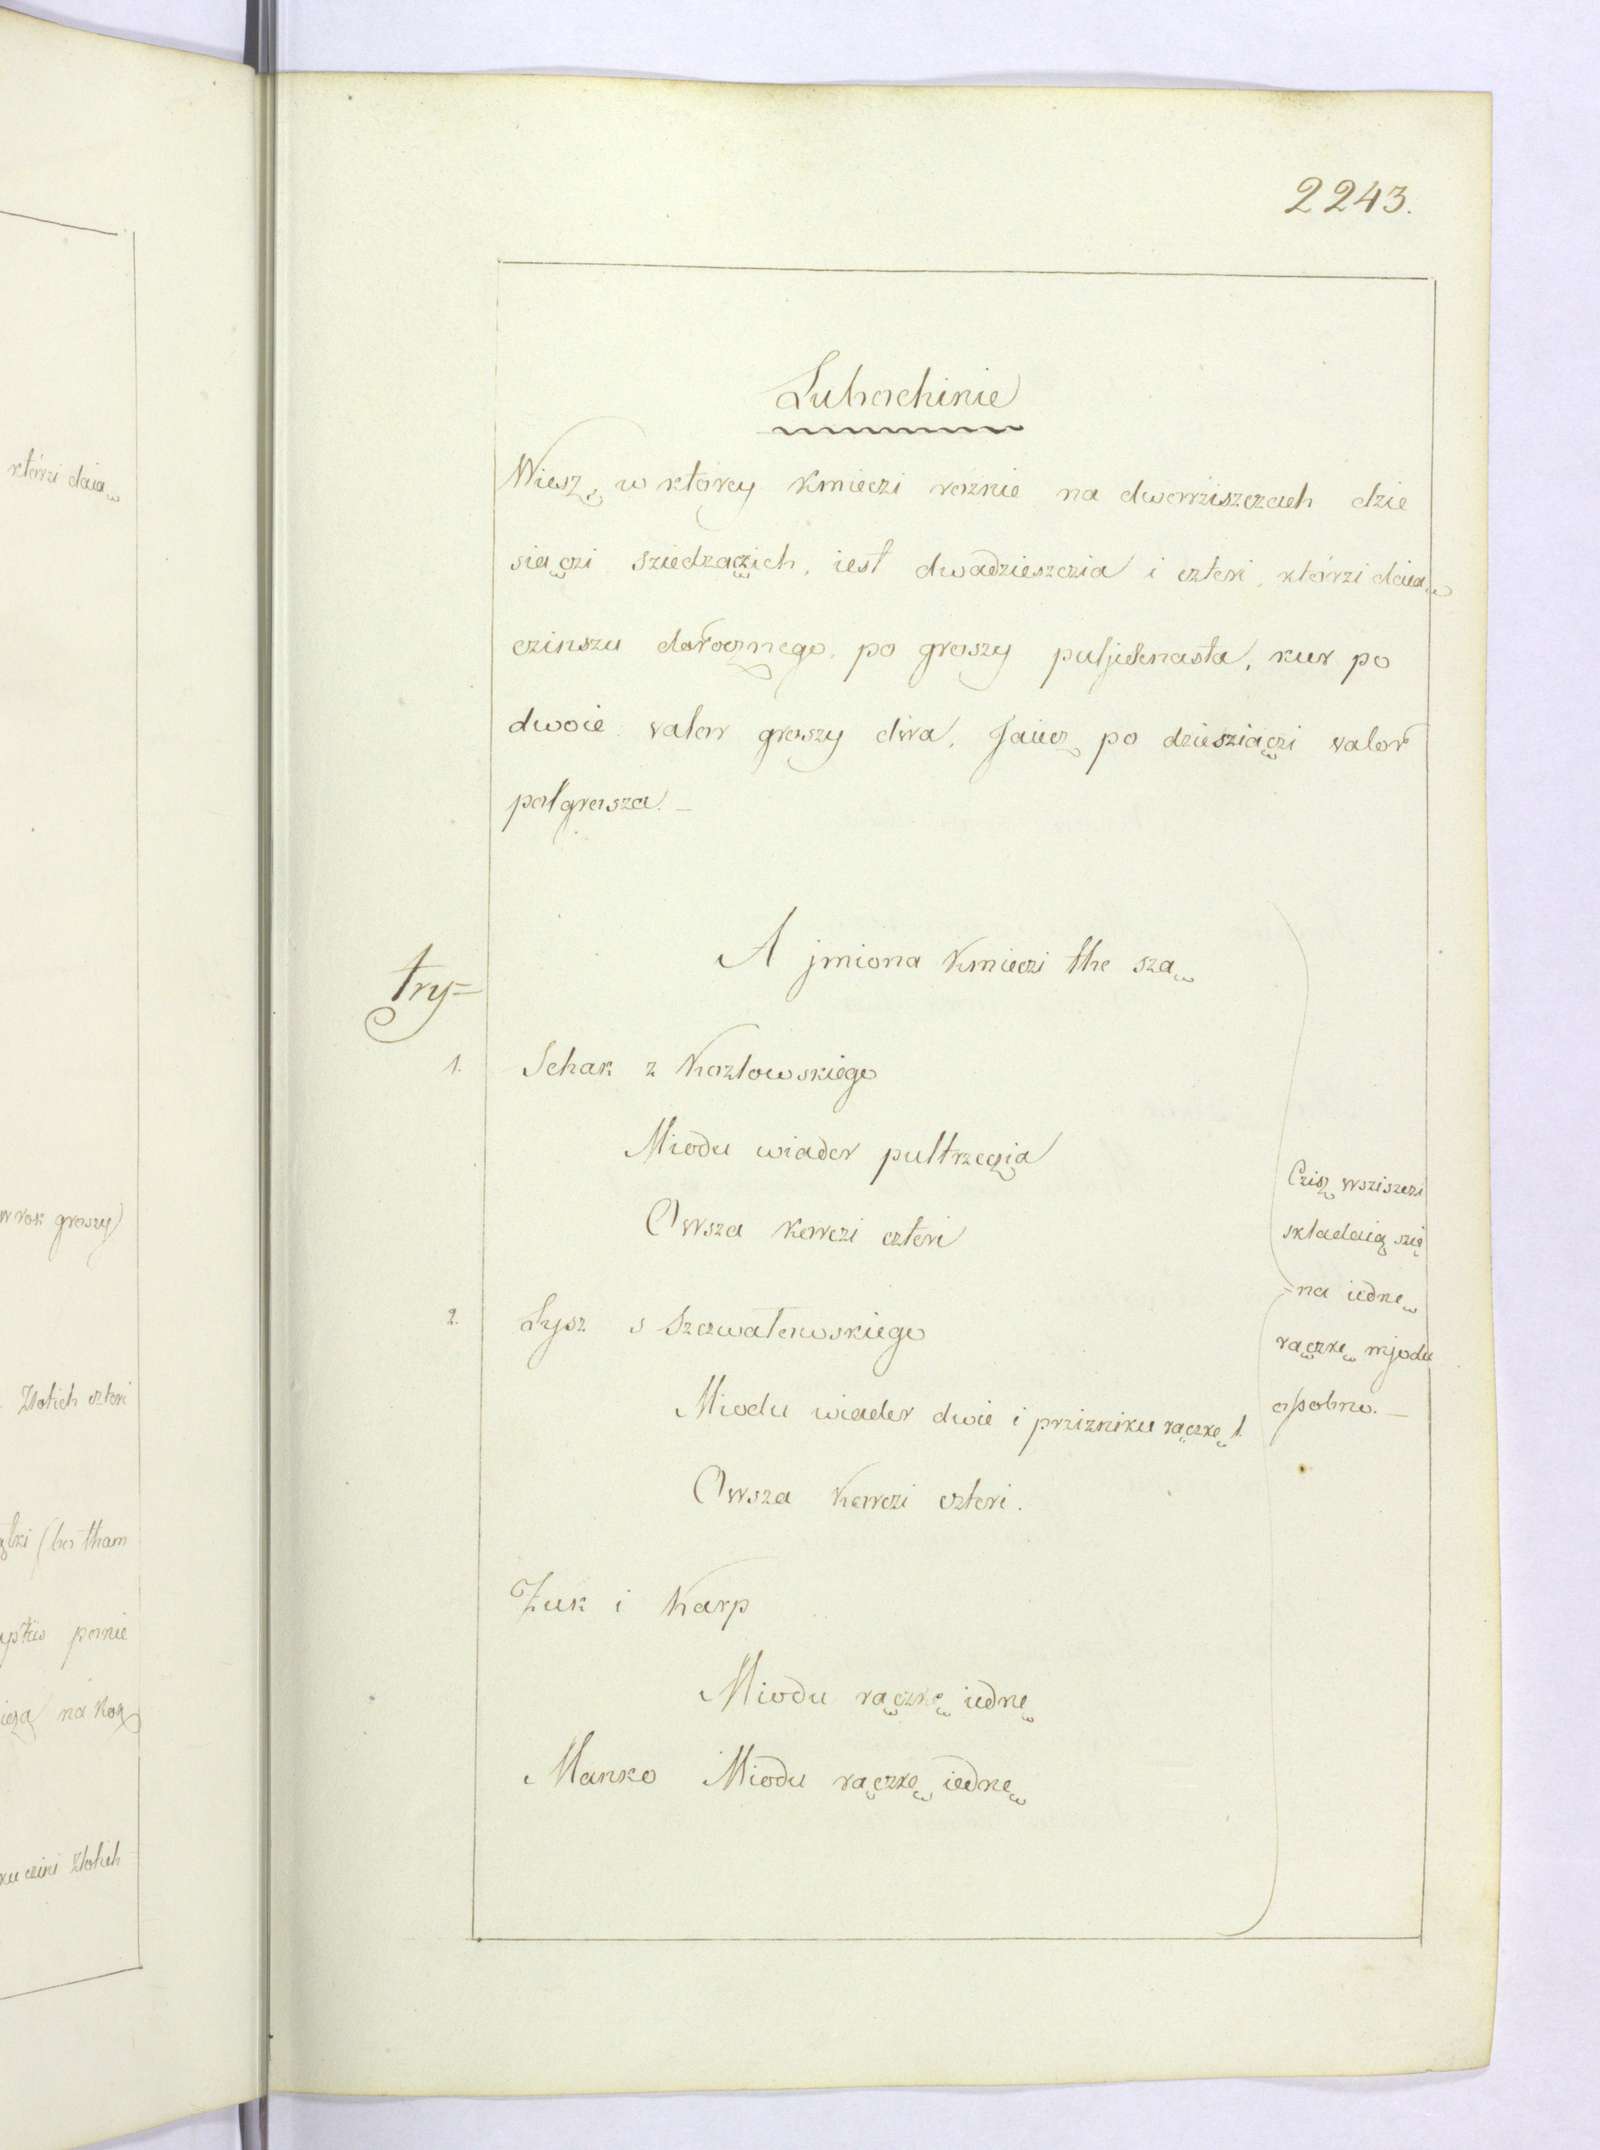 2243.
Luhochinie
Wiesz, w ktorey kmieczi roznie na dworziszczach dzie
siaczi sziedzaczich, iest dwadzieszczia i czteri, ktorzi daia
czinszu dorocznego, po groszy puljedenasta, kur po
dwoie valor groszy dwa, Jaiecz po dziesziaczi valor
polgrosza. —
A jmiona kmieczi the sza
try=
1. Schak z Kozlowskiego
Miodu wiader pultrzeczia
Owsza korczi czteri
2. Lysz s Szawalowskiego
Miodu wiader dwie i prizniku raczke 1.
Owsza korczi czteri.
Zuk i Karp
Miodu raczke iedne
Manko Miodu raczke iedne
Czisz wsziszczi
skladaią szię
na iedne
raczke mjodu
osobno. —
którzi daia
w rok groszy)
Zlotich czteri
(bo tham
na
czini Zlotich